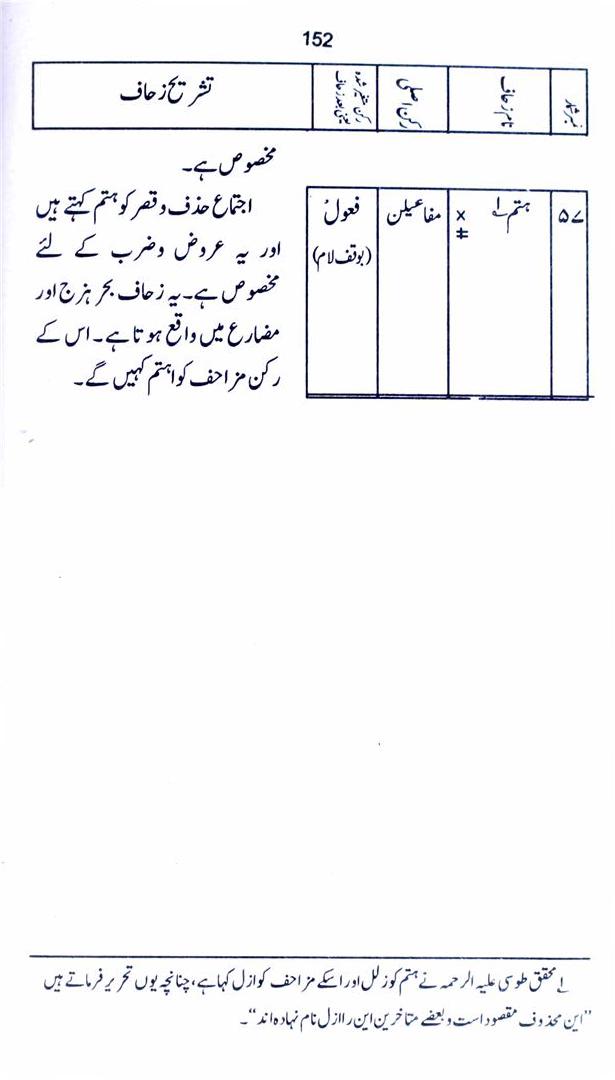 152
نمبر شمار	نام زحاف	رکن اصلی	رکن متغیر شدہ یعنی بعد زحاف	تشریح زحاف
مخصوص ہے۔
۵۷	ہتم ؎۱ × ‡	مفاعیلن	فعولْ (بوقف لام)
اجتماع حذف و قصر کو ہتم کہتے ہیں
اور یہ عروض و ضرب کے لئے
مخصوص ہے۔ یہ زحاف بحر ہزج اور
مضارع میں واقع ہوتا ہے۔ اس کے
رکن مزاحف کو اہتم کہیں گے۔
؎۱ محقق طوسی علیہ الرحمہ نے ہتم کو زلل اور اسکے مزاحف کو ازل کہا ہے، چنانچہ یوں تحریر فرماتے ہیں
"این محذوف مقصود است و بعضے متاخرین این را ازل نام نہادہ اند"۔